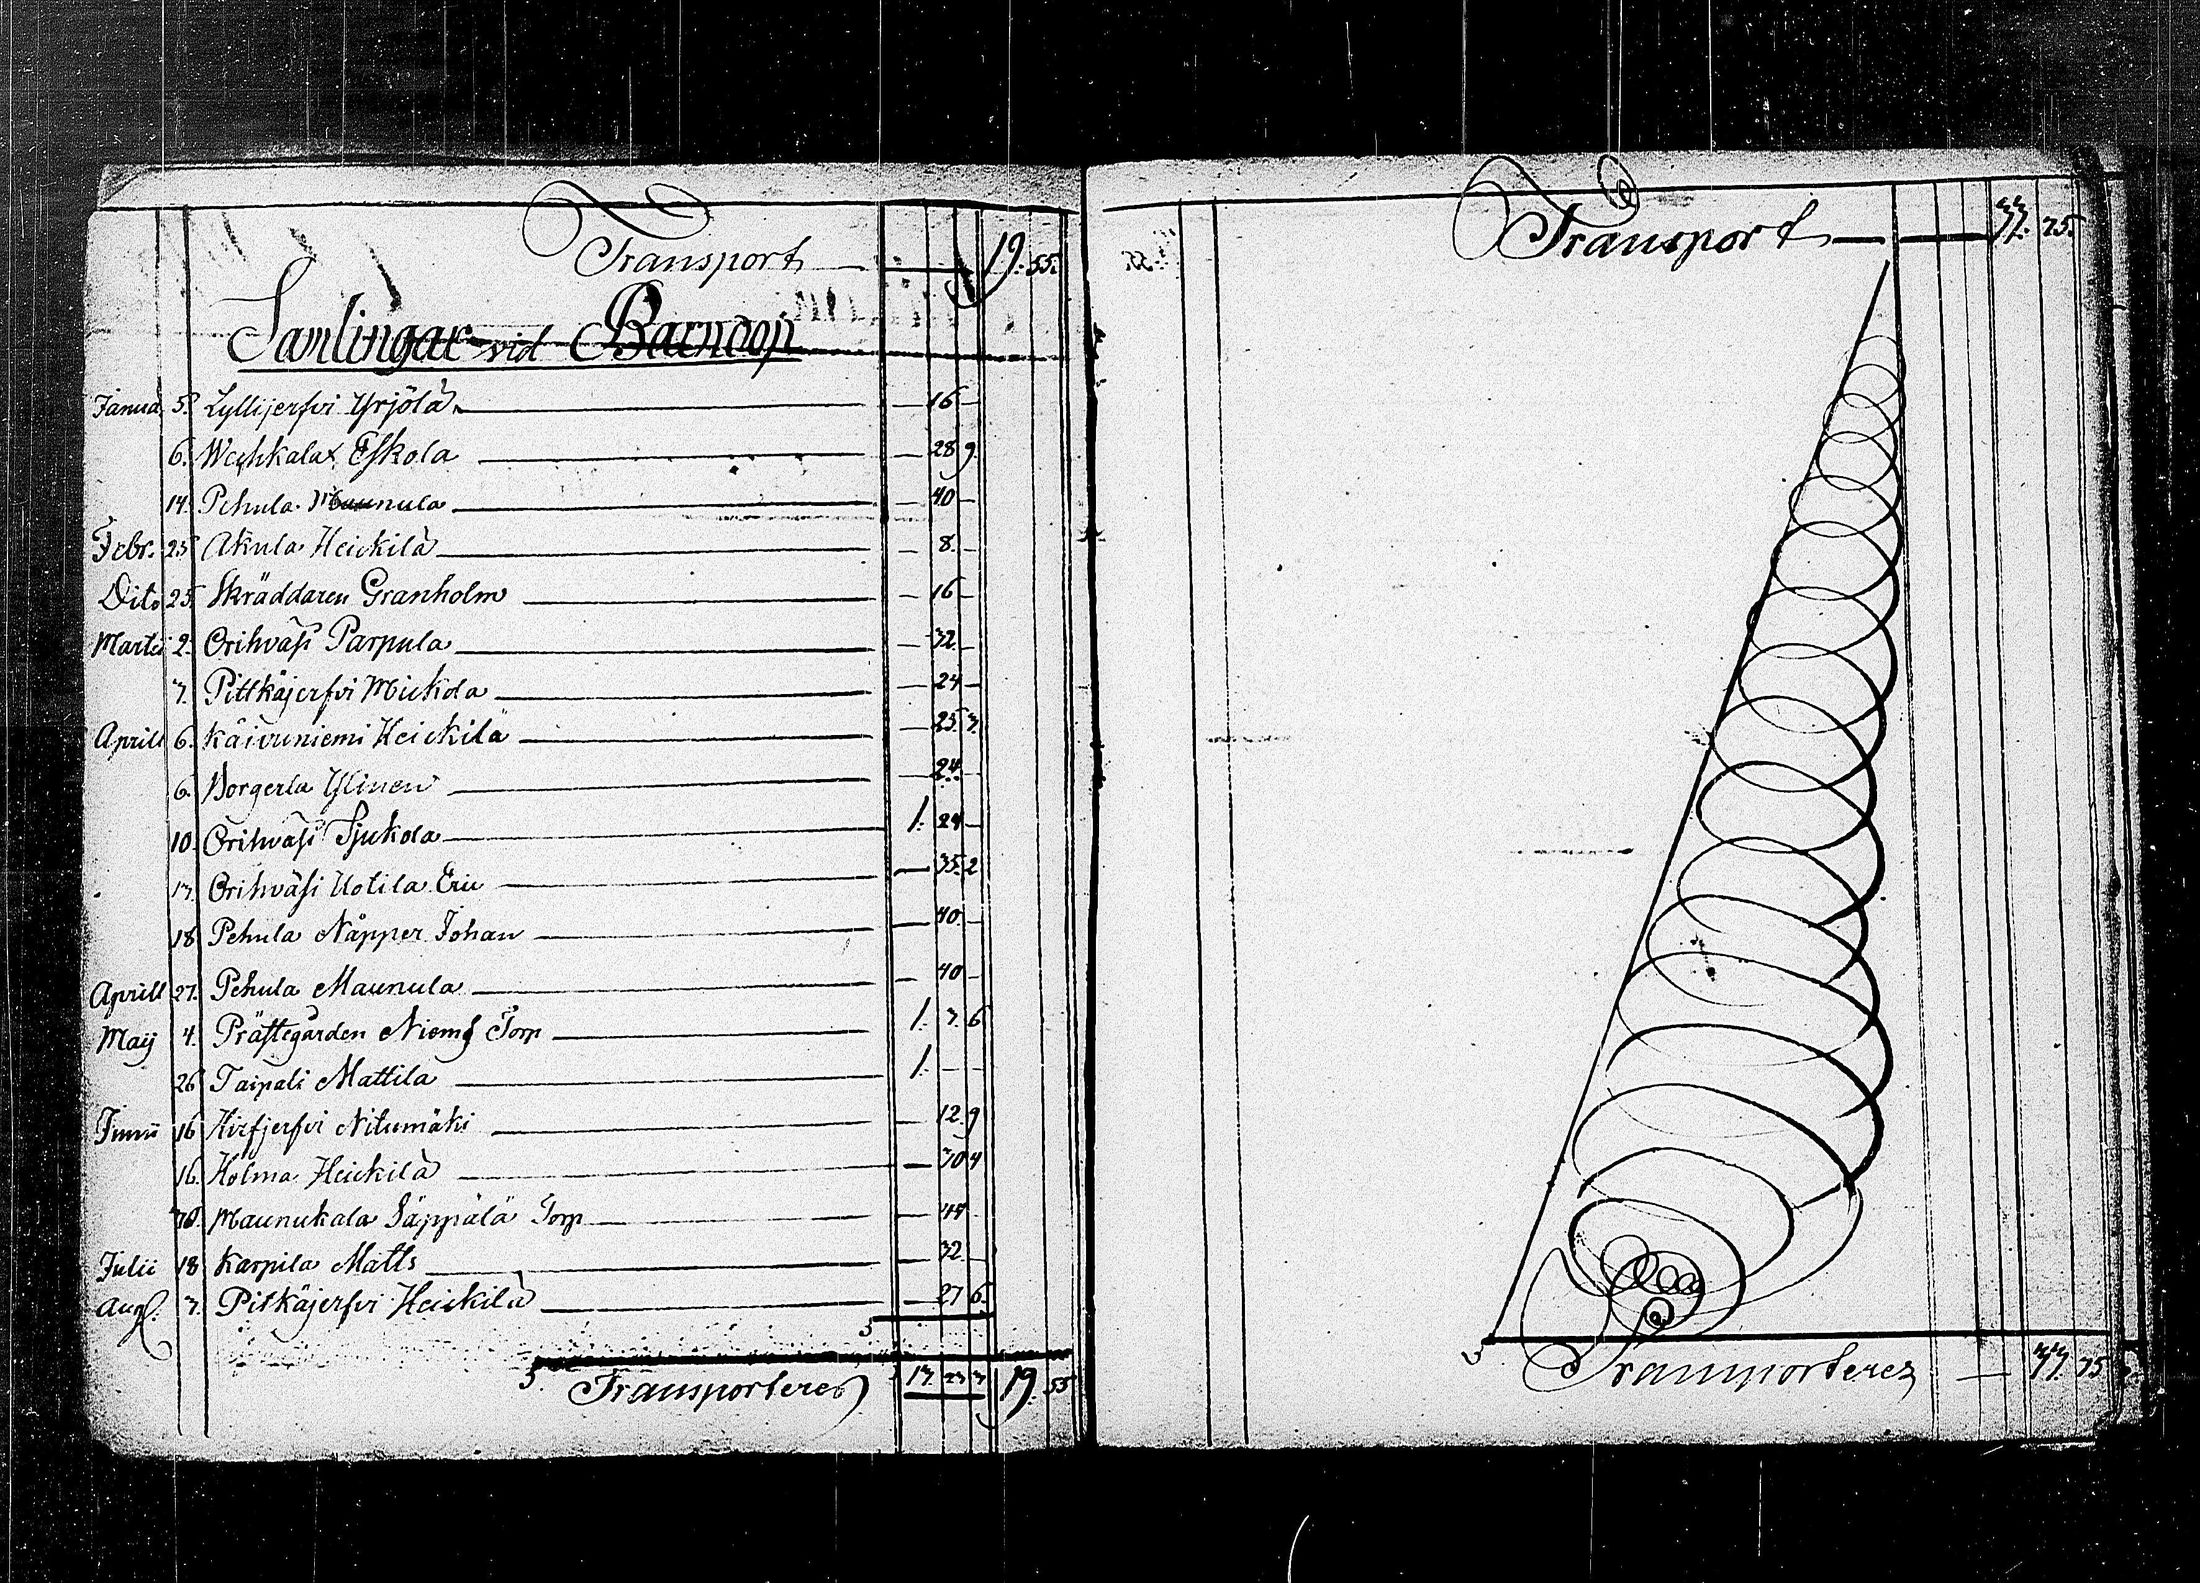 Transport 19. 55.
Samlingar vid Barndop
Janua. 5. Lyllijerfvi Yrjölä — 16 —
6. Wechkala Eskola — 28 9.
14. Pehula Maunula — 40 —
Febr. 25 Akula Heickilä — 8. —
Dito 25. Skräddaren Granholm — 16 —
Martii 2. Orihväsi Parpula — 32 —
7. Pittkäjerfvi Mickola — 24 —
Aprill 6. Käivuniemi Heickilä — 25 7.
6. Borgerla Ylinen — 24. —
10. Orihväsi Sjukola 1. 24 —
17. Orihväsi Uotila Eric — 35. 2
18. Pehula Näpper Johan — 40. —
Aprill 27. Pehula Maunula — 40 —
Maij 4. Prästegården Niemis Torp 1. 7. 6
26 Taipali Mattila 1. — —
Junii 16 Hirfjerfvi Nitumäki — 12. 9
16. Holma Heickilä — 30 4
30. Maunukala Säppälä Torp — 44 —
Julii 18 Karpila Matts — 32 —
Aug. 7. Pitkäjerfvi Heickilä — 27 6.
Transporteres 17. 23 7 19. 55
Transport 77. 25.
Transporteres — 77. 75